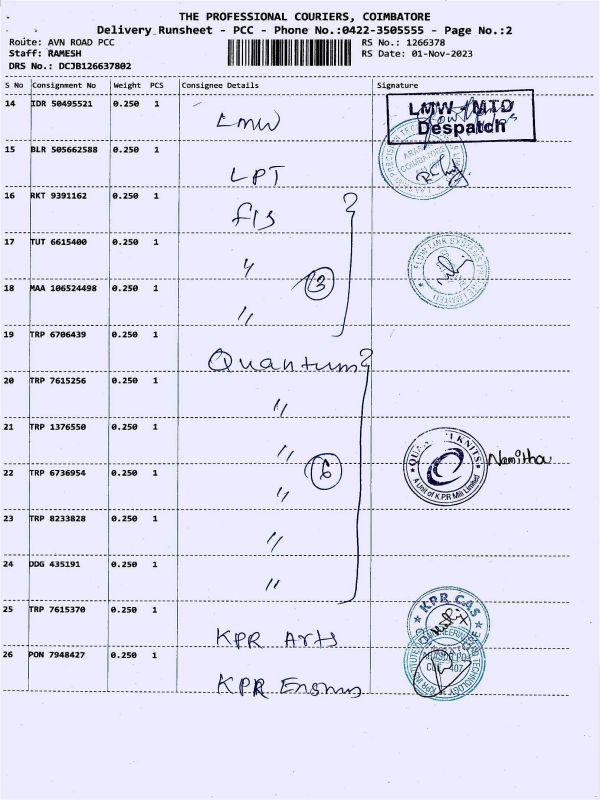 THE PROFESSIONAL COURIERS, COIMBATORE
Delivery Runsheet - PCC - Phone No.:0422-3505555 - Page No.:2
Route: AVN ROAD PCC RS No.: 1266378
Staff: RAMESH RS Date: 01-Nov-2023
DRS No.: DCJB126637802
S No Consignment No Weight PCS Consignee Details Signature
14 IDR 50495521 0.250 1 LMW LMW - MTD
Despatch
15 BLR 505662588 0.250 1 LPT
16 RKT 9391162 0.250 1 fls
17 TUT 6615400 0.250 1 〃 FLOW LINK SYSTEMS PRIVATE LIMITED
3
18 MAA 106524498 0.250 1 〃
19 TRP 6706439 0.250 1 Quantum
20 TRP 7615256 0.250 1 〃
21 TRP 1376550 0.250 1 〃 KNITS Namitha
A Unit of K.P.R Mill Limited
6
22 TRP 6736954 0.250 1 〃
23 TRP 8233828 0.250 1 〃
24 DDG 435191 0.250 1 〃
25 TRP 7615370 0.250 1 KPR Arts KPR CAS
26 PON 7948427 0.250 1 KPR